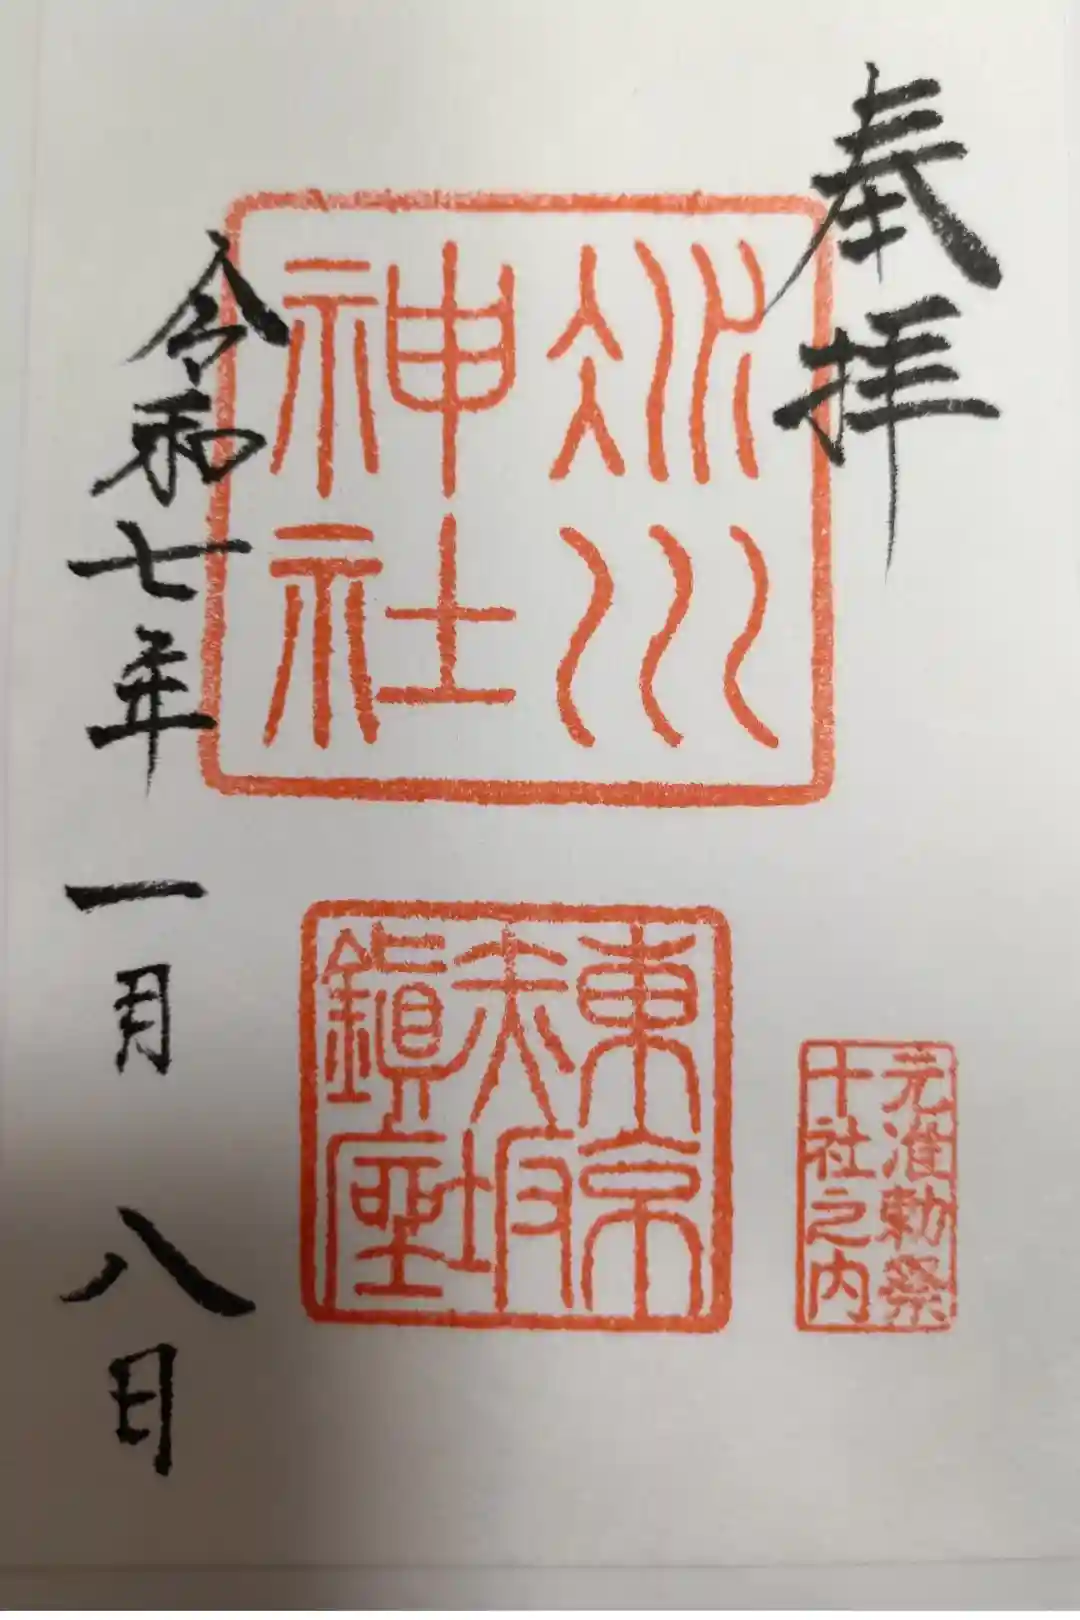 奉拝
冰川
神社
元准勅祭
十社之内
東京
赤坂
鎭座
令和七年一月八日